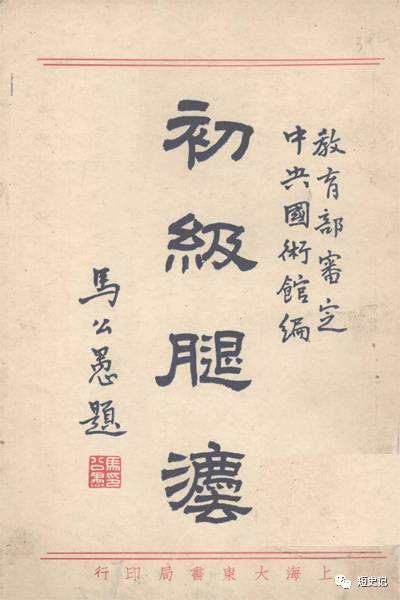 教育部審定
中央國術館編
初級腿灋
馬公愚題
上海大東書局印行
短史记